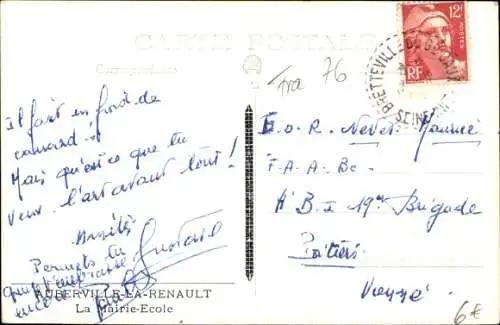 CARTE POSTALE
Correspondance
Fra 76
12F
POSTES
RF
BRETTEVILLE DU GRAND CAUX
SEINE
Il fait un froid de
canard !
Mais qu'est-ce que tu
veux. l'art avant tout !
Amitiés
Gustave
Permets tu
E.O.R. Nevet Maurice
F.A.A. Bc.
H B I 19e Brigade
Poitiers
Vienne
AUBERVILLE-LA-RENAULT
La Mairie-Ecole
6€